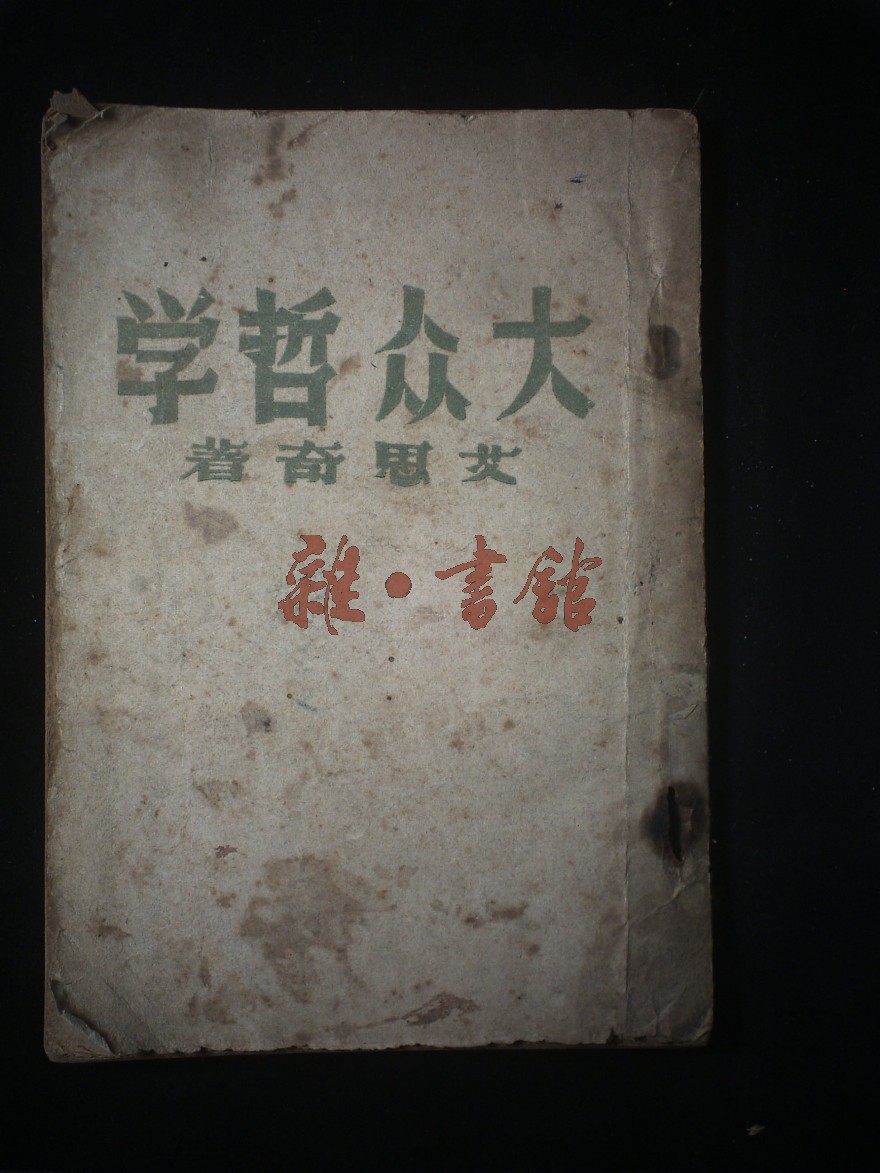 大众哲学
艾思奇著
雜·書館